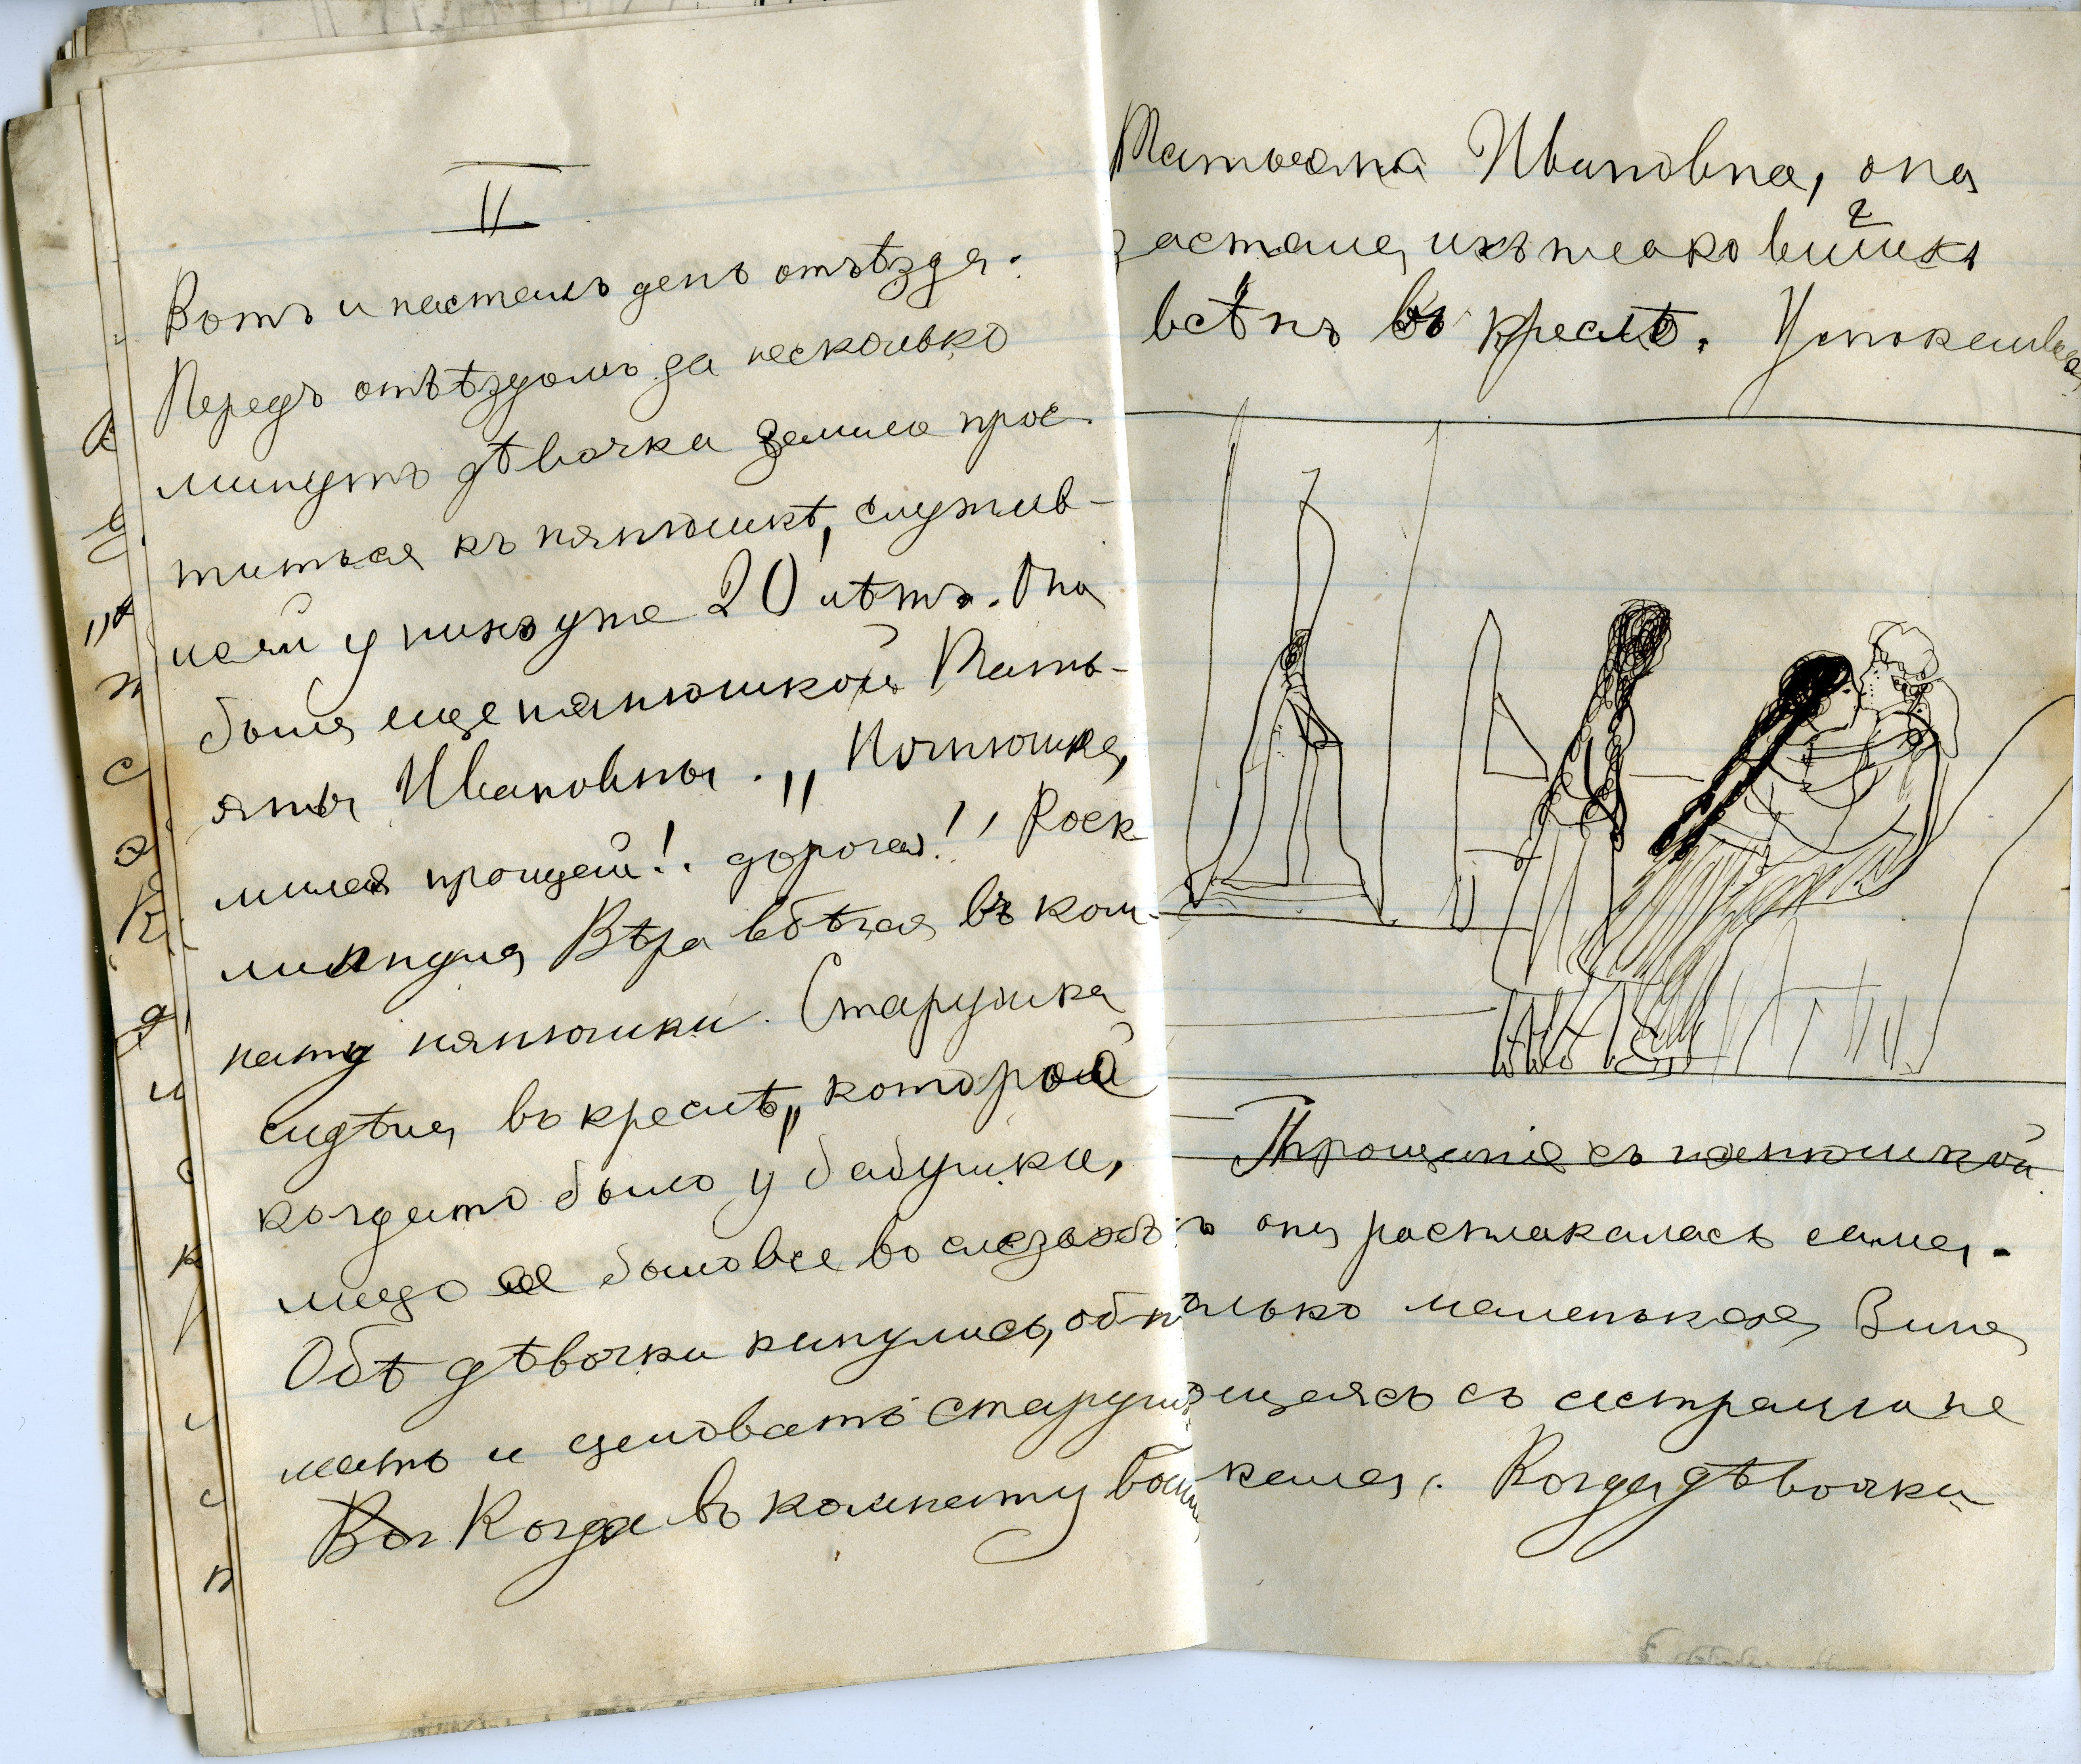 II
Вотъ и насталъ день отъѣзда.
Передъ отъѣздомъ за несколько
минутъ дѣвочка зашла прос-
титься къ нянюшкѣ, служив-
шей у нихъ уже 20 лѣтъ. Она
была еще нянюшкой Тать-
яны Ивановны. „Нянюшка,
милая прощай!. дорогая!" Воск-
ликнула Вѣра вбѣгая въ ком-
нату нянюшки. Старушка
сидѣла въ креслѣ, которой
когдато было у бабушки,
лицо ее было все во слезахъ
Обѣ дѣвочки кинулись, обни
мать и целовать старуш
Когда въ комнату вош
Татьяна Ивановна, она
застала ихъ
всѣхъ въ креслѣ. Успокаивая
Прощаніе съ нянюшкой
ъ она расплакалась сама.
олько маленькая Зина
ощаясь съ сестрами не
кала. Когда дѣвочки